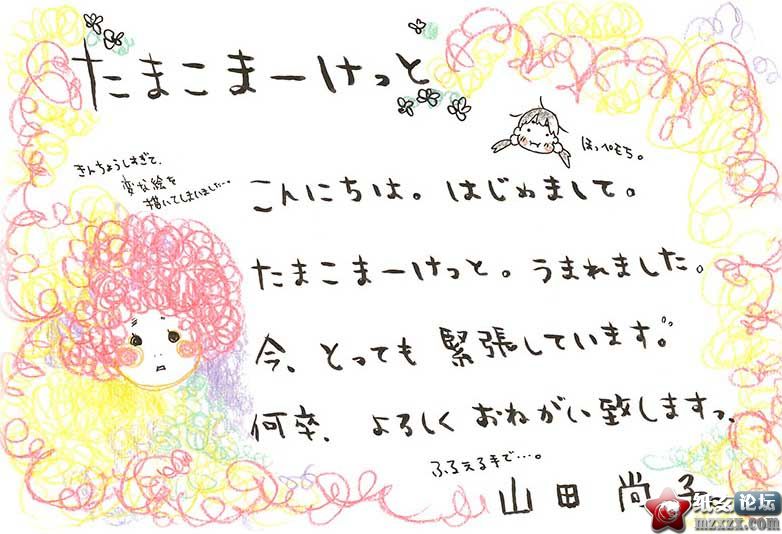 たまこまーけっと
ほっぺもち。
きんちょうしすぎて、
変な絵を
描いてしまいました…
こんにちは。はじめまして。
たまこまーけっと。うまれました。
今、とっても緊張しています。
何卒、よろしくおねがい致しますっ。
ふるえる手で…。
山田尚子
论坛
mzxzx.com